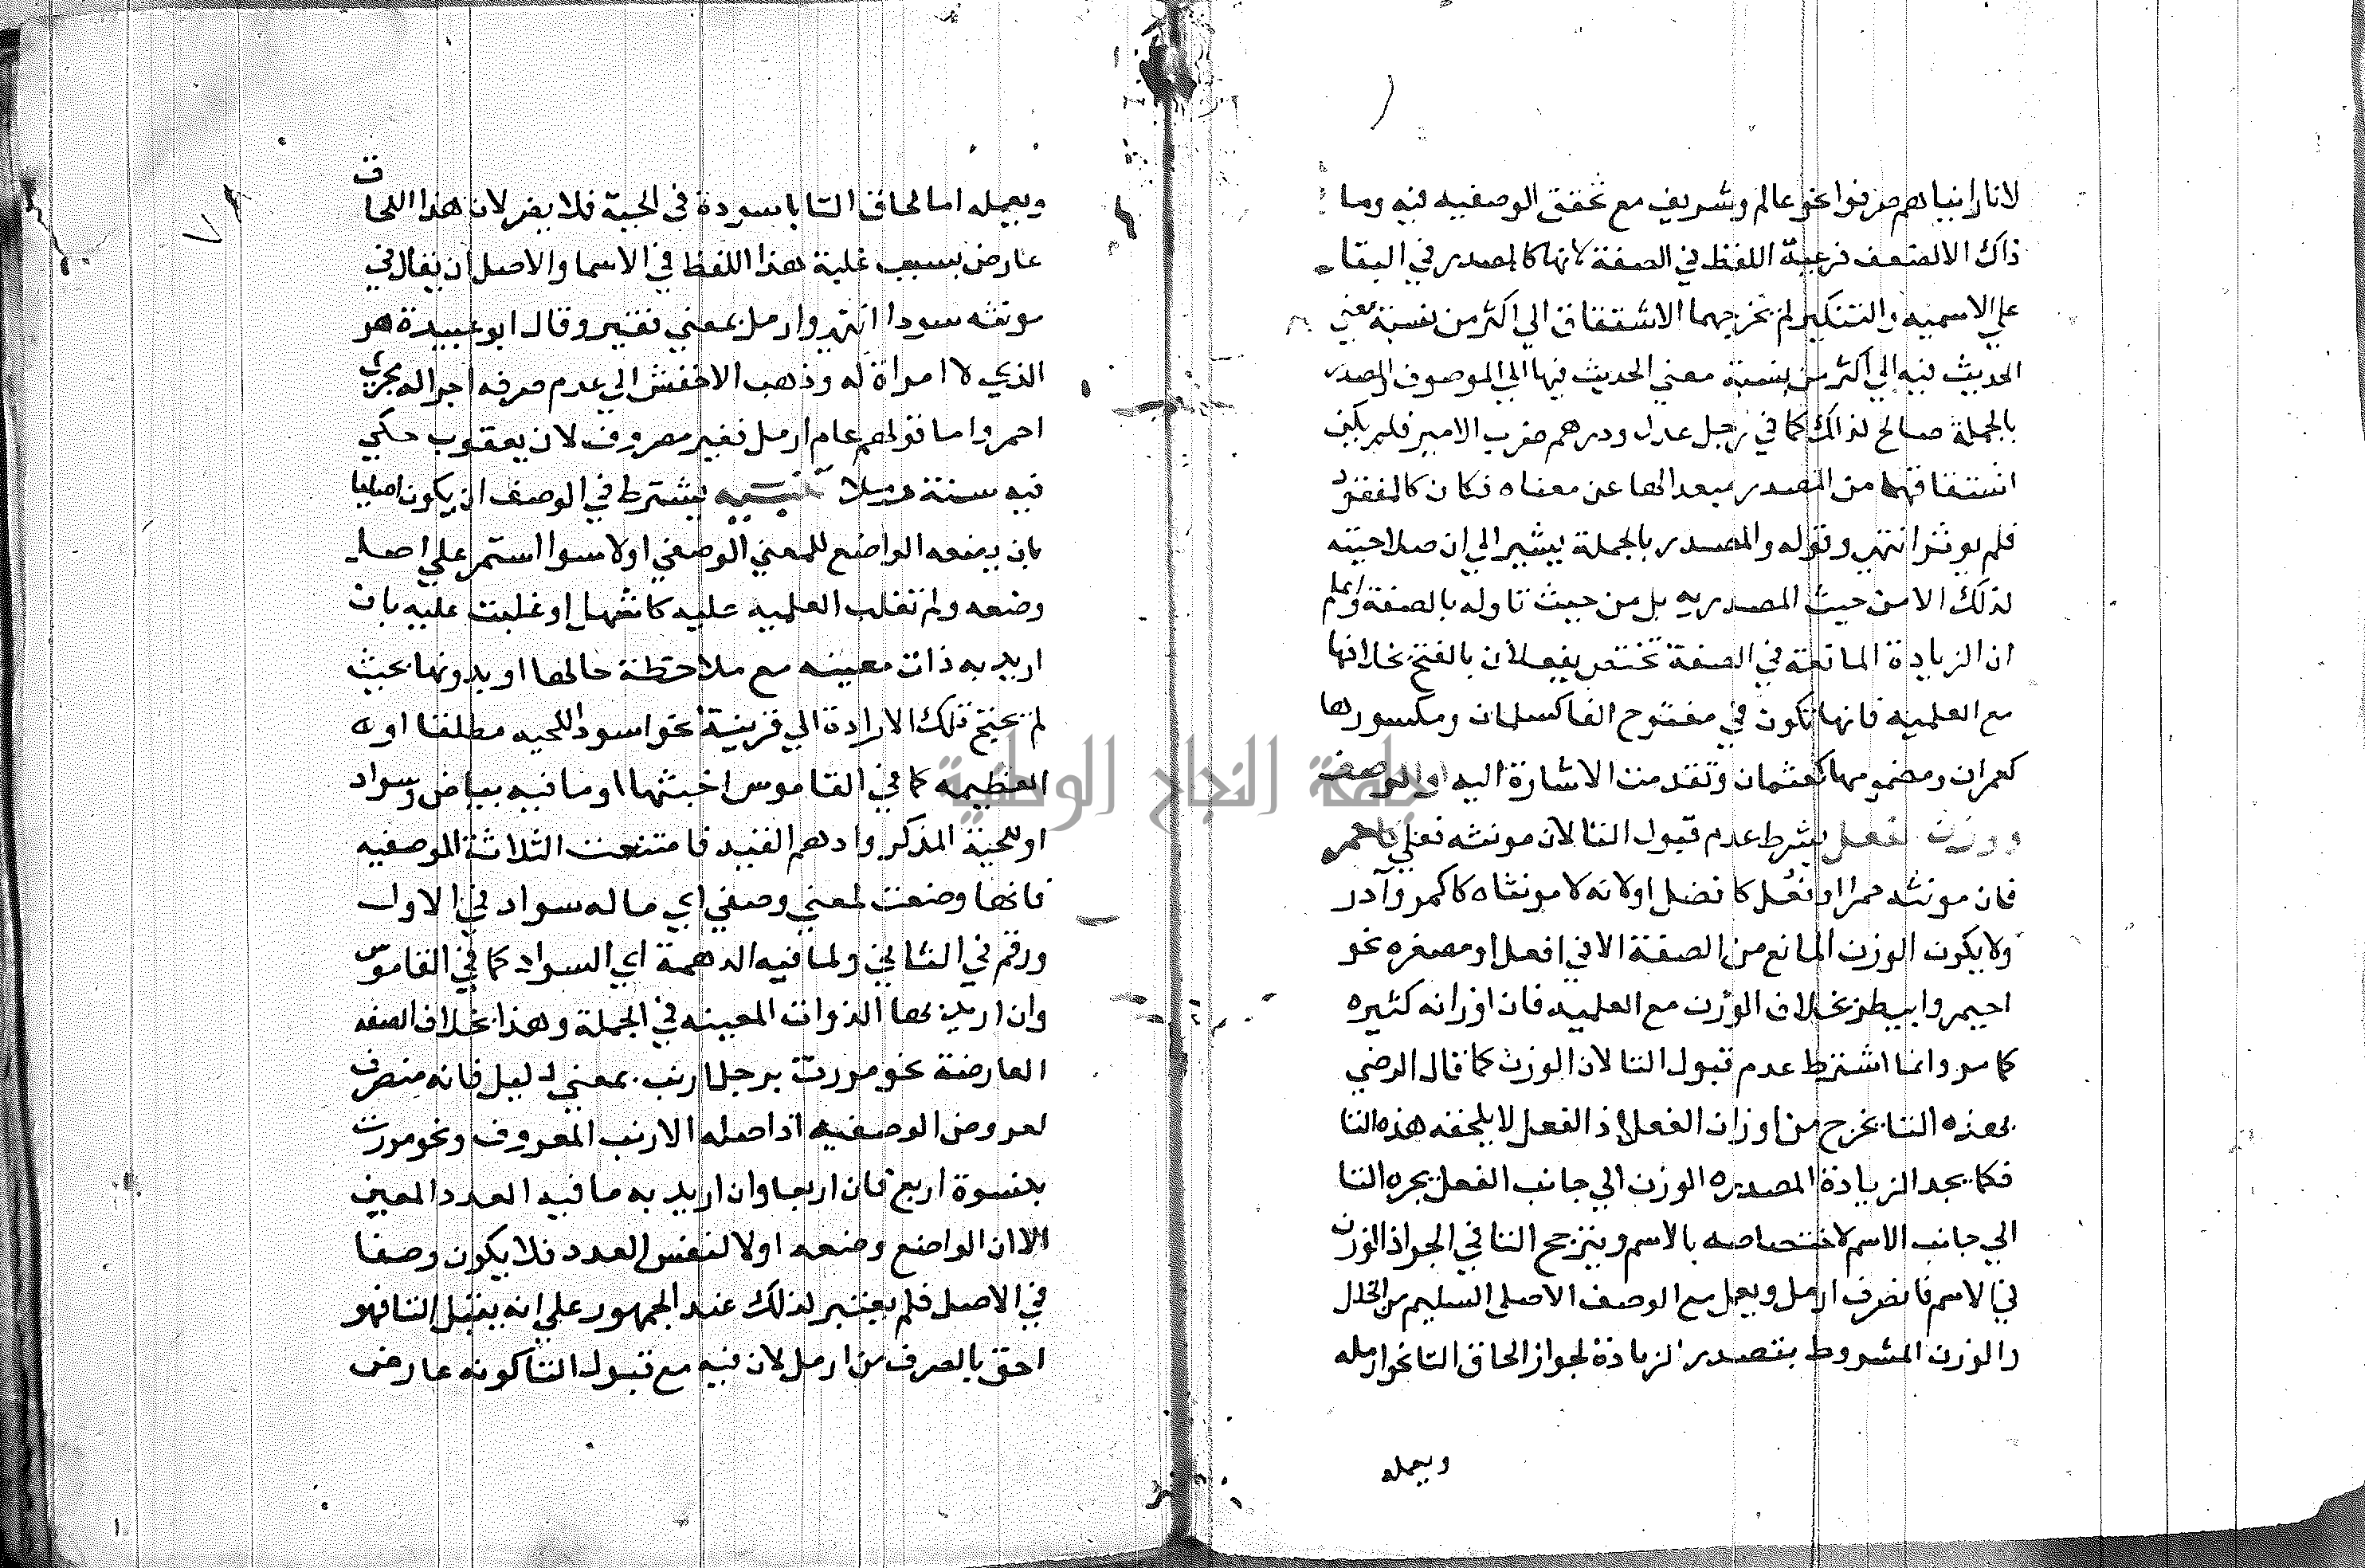 لانا رايناهم صرفوا نحو عالم وشريف مع تحقق الوصفيه فيه وما
ذاك الا لضعف فرعية اللفظ في الصفة لانها كالمصدر في البقا
علي الاسميه والتنكير لم يخرجهما الاشتقاق الي اكثر من نسبة معني
الحديث فيه الي اكثر من نسبة معني الحديث فيها الي الموصوف والمصدر
بالجملة صالح لذالك كما في رجل عدل ودرهم ضرب الامير فلم يكن
اشتقاقها من المصدر مبعدا لها عن معناه فكان كالمفقود
فلم يوثر انتهي وقوله والمصدر بالجملة يشير الي ان صلاحيته
لذلك الا من حيث المصدريه بل من حيث تاوله بالصفة واعلم
ان الزيادة المانعة في الصفة تختص بفعلان بالفتح بخلافها
مع العلميه فانها تكون في مفتوح الفا كسلمان ومكسورها
كعمران ومضمومها كعثمان وتقدمت الاشارة اليه او الوصف
ووزن افعل بشرط عدم قبول التا لان مونثه فعلي كاحمر
فان مونثه حمرا او فعل كافضل او لانه لا مونث له كاكمر وآدر
ولا يكون الوزن المانع من الصفة الا في افعل او مصغره نحو
احيمر وابيطر بخلاف الوزن مع العلميه فان اوزانه كثيره
كما مر وانما اشترط عدم قبول التا لان الوزن كما قال الرضي
بهذه التا يخرج من اوزان الفعل اذ الفعل لا يلحقه هذه التا
فكما يجد الزيادة المصدره الوزن الي جانب الفعل يجره التا
الي جانب الاسم لاختصاصه بالاسم ويترجح التا في الجواذ الوزن
في الاسم فانصرف ارمل ويعمل مع الوصف الاصلي السليم من الخلل
والوزن المشروط بتصدر الزيادة لجواز الحاق التا نحو ارمله
ويعمله
ويعمله اما لحاق التا باسودة في الحية فلا يضر لان هذا اللحاق
عارض بسبب غلبة هذا اللفظ في الاسما والاصل ان يقال في
مونثه سودا انتهي وارمل بمعني فقير وقال ابو عبيدة هو
الذي لا امراة له وذهب الاخفش الي عدم صرفه اجرا له مجري
احمر واما قولهم عام ارمل فغير مصروف لان يعقوب حكي
فيه سنة رملا تنبيه يشترط في الوصف ان يكون اصليا
بان يضعه الواضع للمعني الوصفي اولا سوا استمر علي اصل
وضعه ولم تغلب العلميه عليه كاشهل او غلبت عليه بان
اريد به ذات معينه مع ملاحظة حالها او بدونها بحيث
لم يحتج تلك الارادة الي قرينة نحو اسود للحيه مطلقا او
العظيمه كما في القاموس اخبثها او ما فيه بياض وسواد
او للحية المذكر وادهم القيد فامتنعت الثلاثة للوصفيه
فانها وضعت لمعني وصفي اي ماله سواد في الاول
ورقم في الثاني ولما فيه الدهمة اي السواد كما في القاموس
وان اريد بها الذوات المعينه في الجملة وهذا بخلاف الصفه
العارضة نحو مررت برجل ارنب بمعني ذليل فانه منصرف
لعروض الوصفيه اذ اصله الارنب المعروف ونحو مررت
بنسوة اربع فان اربعا وان اريد به ما فيه العدد المعين
الا ان الواضع وضعه اولا لنفس العدد فلا يكون وصفا
في الاصل فلم يعتبر لذلك عند الجمهور علي انه يقبل التا فهو
احق بالصرف من ارمل لان فيه مع قبول التا كونه عارض
جلفة النجاح الوطنية